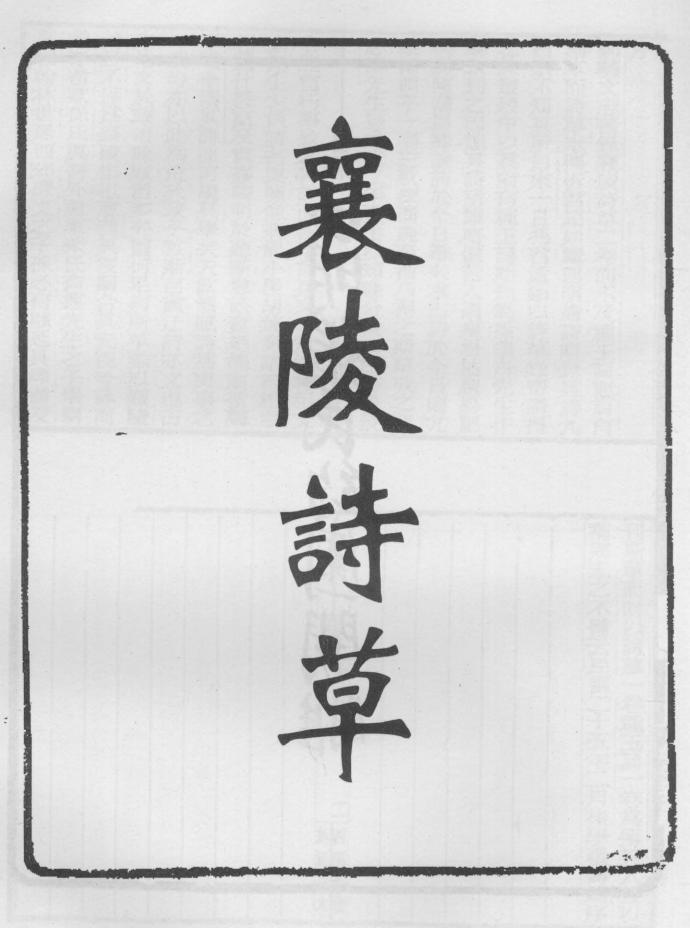 襄陵詩草